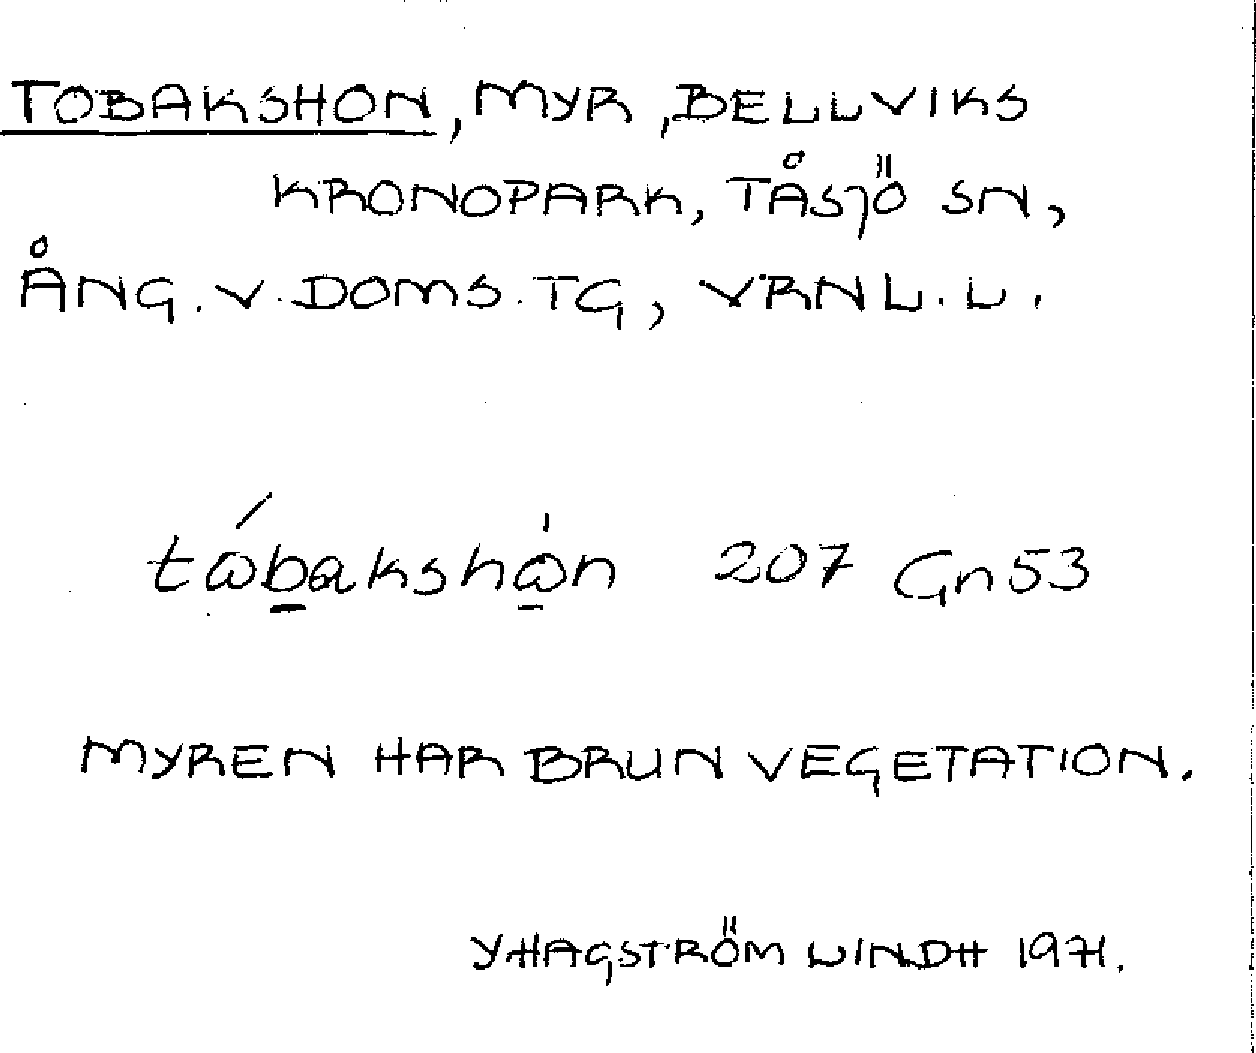 TOBAKSHON, MYR, BELLVIKS
KRONOPARK, TÅSJÖ SN,
ÅNG. V. DOMS. TG, VRNL. L.
tɷ́bakshɷ̀n 207 Gn53
MYREN HAR BRUN VEGETATION.
YHAGSTRÖM LINDH 1971.